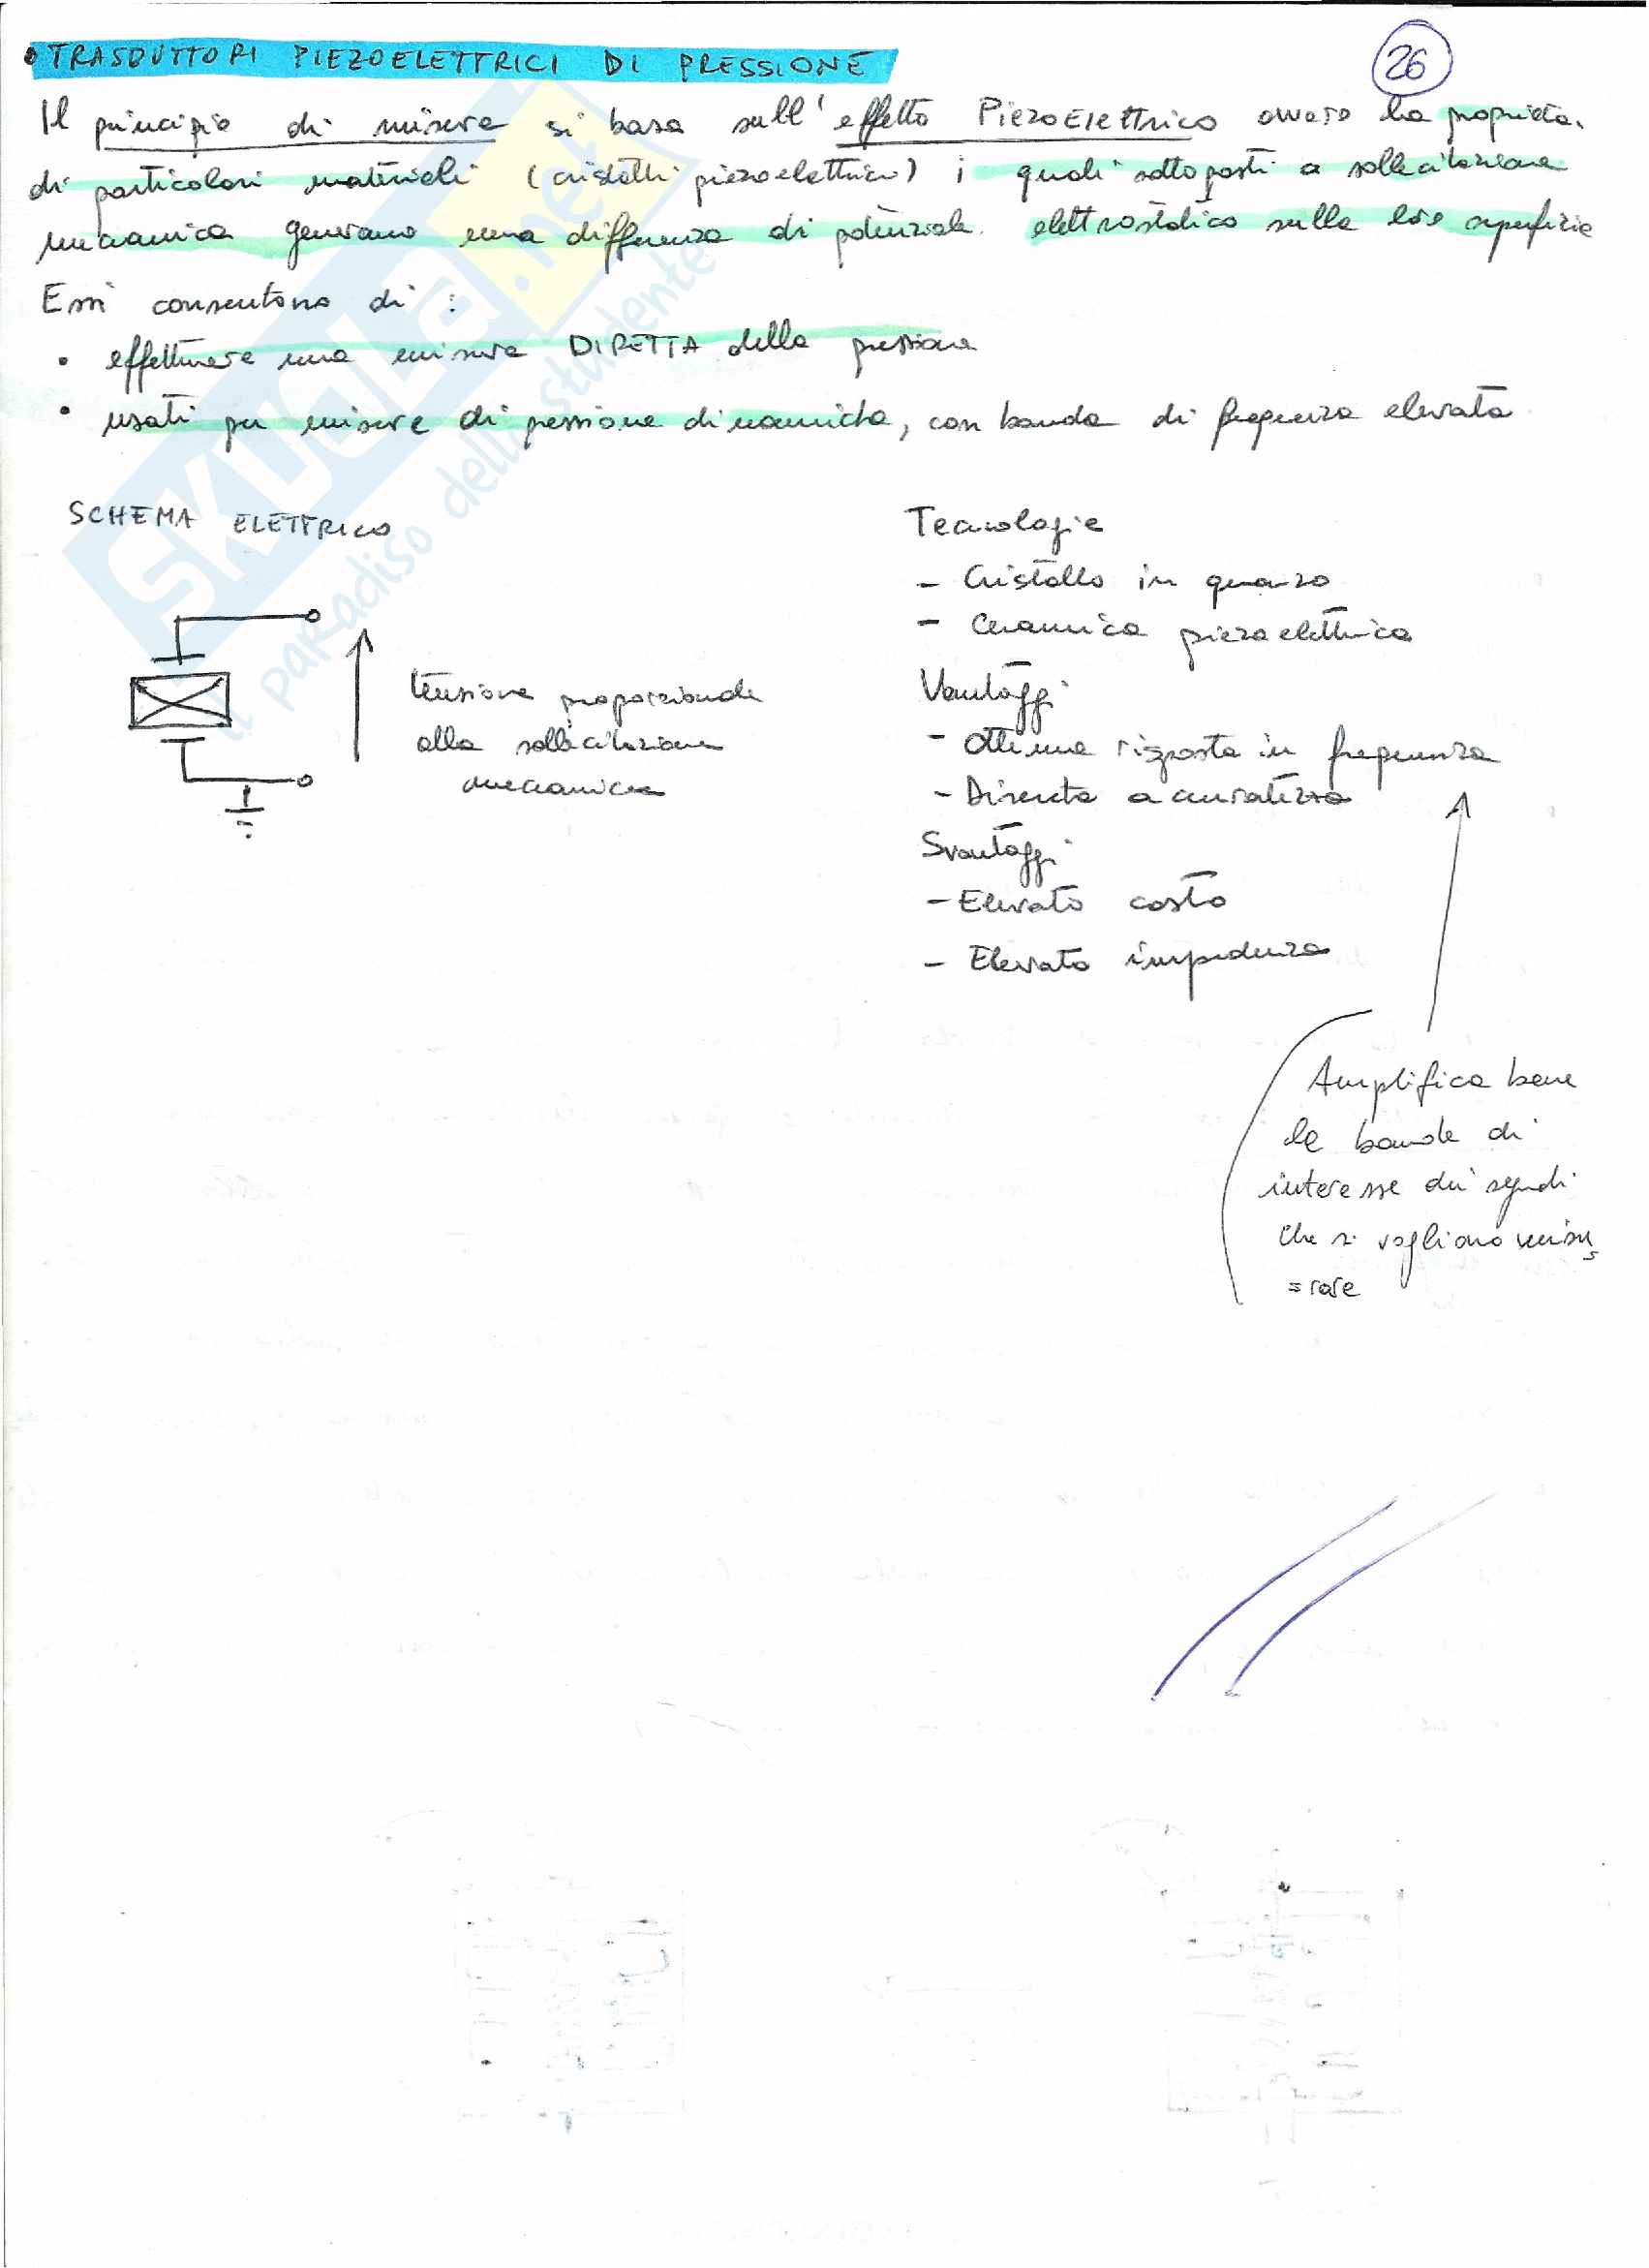 • TRASDUTTORI PIEZOELETTRICI DI PRESSIONE
26
Il principio di misura si basa sull'effetto PiezoElettrico ovvero la proprietà
di particolari materiali (cristalli piezoelettrici) i quali sottoposti a sollecitazione
meccanica generano una differenza di potenziale elettrostatico sulla loro superficie
Essi consentono di :
• effettuare una misura DIRETTA della pressione
• usati per misure di pressione dinamiche, con banda di frequenza elevata
SCHEMA ELETTRICO
tensione proporzionale
alla sollecitazione
meccanica
Tecnologie
- Cristallo in quarzo
- Ceramica piezoelettrica
Vantaggi
- Ottima risposta in frequenza
- Discreta accuratezza
Svantaggi
- Elevato costo
- Elevata impedenza
Amplifica bene
le bande di
interesse dei segnali
che si vogliono misu
=rare
SKUOLA.net
il paradiso dello studente